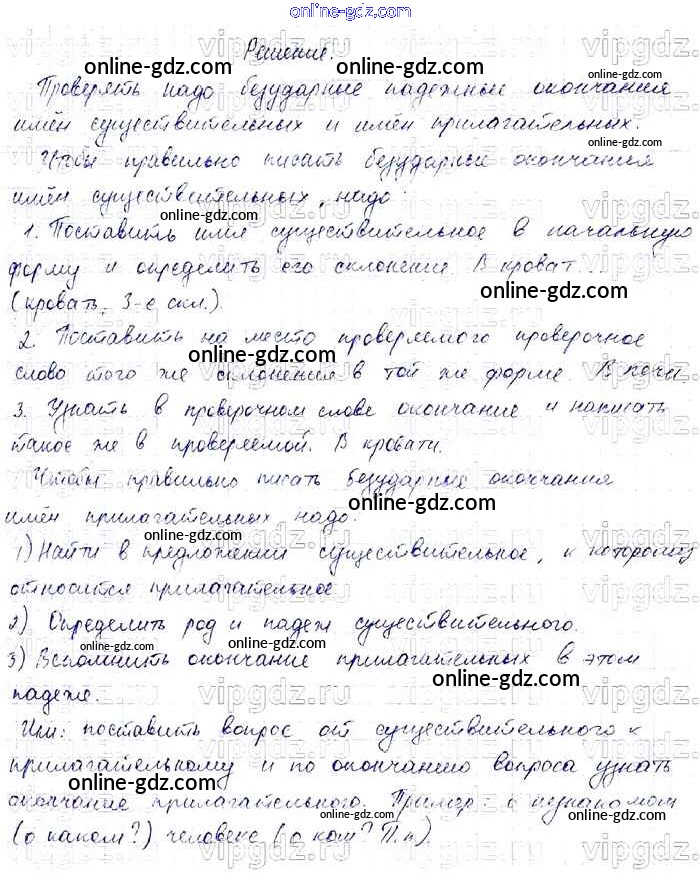 online-gdz.com
Решение.
Проверять надо безударные падежные окончания
имён существительных и имён прилагательных.
Чтобы правильно писать безударные окончания
имён существительных, надо:
1. Поставить имя существительное в начальную
форму и определить его склонение В кроват...
(кровать, 3-е скл.).
2. Поставить на место проверяемого проверочное
слово того же склонения в той же форме В печи.
3. Узнать в проверочном слове окончание и написать
такое же в проверяемой. В кровати.
Чтобы правильно писать безударные окончания
имён прилагательных надо:
1) Найти в предложении существительное, к которому
относится прилагательное
2). Определить род и падеж существительного.
3) Вспомнить окончание прилагательных в этом
падеже.
Или: поставить вопрос от существительного к
прилагательному и по окончанию вопроса узнать
окончание прилагательного. Пример: о незнакомом
(о каком?) человеке (о ком? П.п).